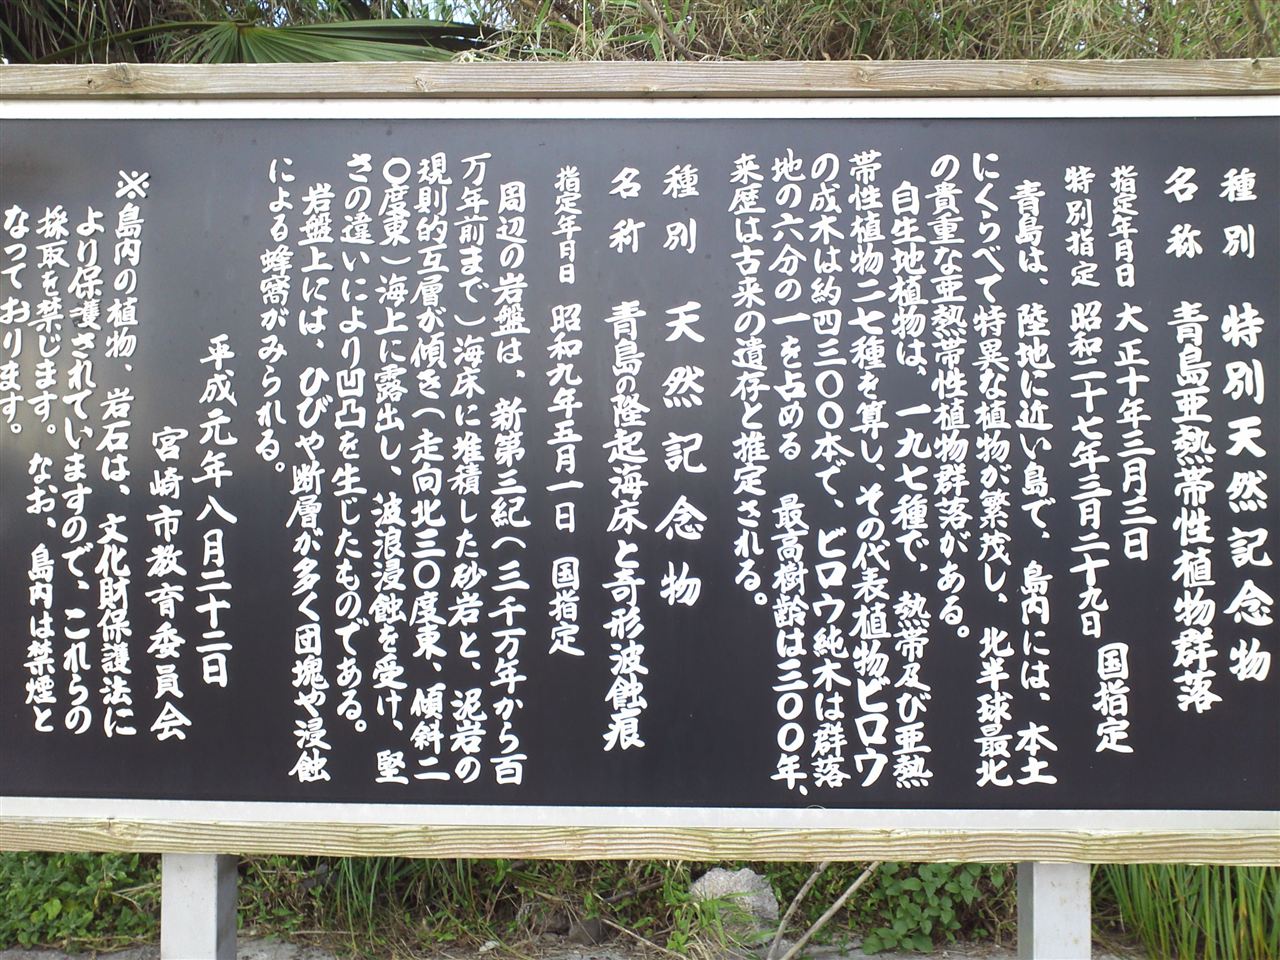 種別 特別天然記念物
名称 青島亜熱帯性植物群落
指定年月日 大正十年三月三日
特別指定 昭和二十七年三月二十九日 国指定
青島は、陸地に近い島で、島内には、本土
にくらべて特異な植物が繁茂し、北半球最北
の貴重な亜熱帯性植物群落がある。
自生地植物は、一九七種で、熱帯及び亜熱
帯性植物二七種を算し、その代表植物ビロウ
の成木は約四三〇〇本で、ビロウ純木は群落
地の六分の一を占める 最高樹齢は三〇〇年、
来歴は古来の遺存と推定される。
種別 天然記念物
名称 青島の隆起海床と奇形波蝕痕
指定年月日 昭和九年五月一日 国指定
周辺の岩盤は、新第三紀(三千万年から百
万年前まで)海床に堆積した砂岩と、泥岩の
規則的互層が傾き(走向北三〇度東、傾斜二
〇度東)海上に露出し、波浪浸蝕を受け、堅
さの違いにより凹凸を生じたものである。
岩盤上には、ひびや断層が多く団塊や浸蝕
による蜂窩がみられる。
平成元年八月二十二日
宮崎市教育委員会
※島内の植物、岩石は、文化財保護法に
より保護されていますので、これらの
採取を禁じます。なお、島内は禁煙と
なっております。